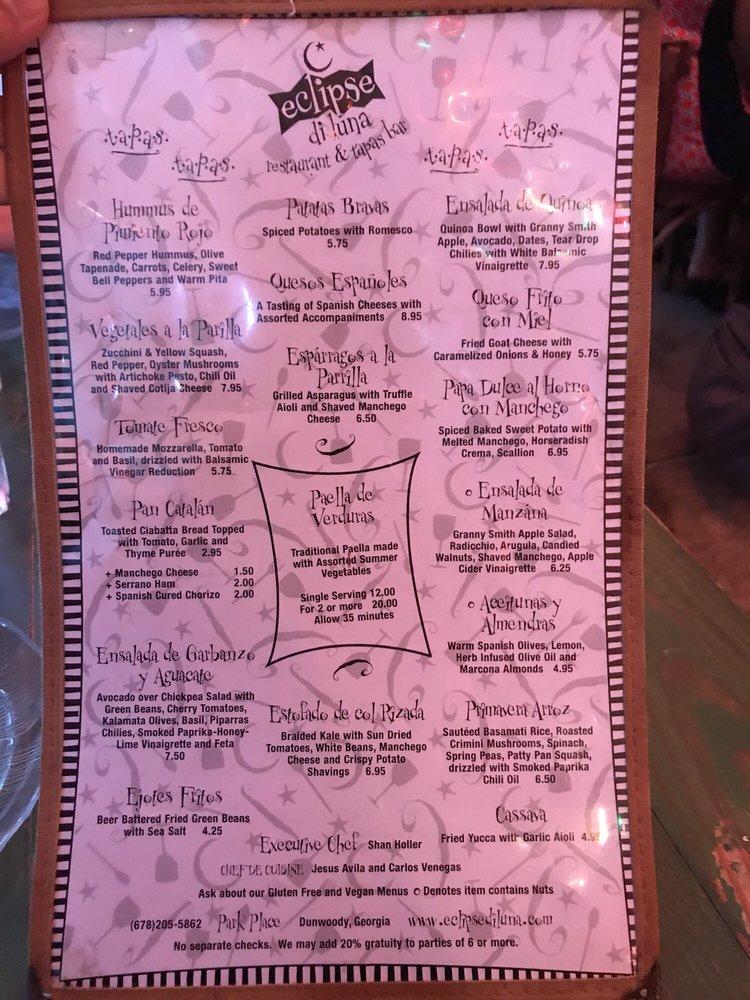 eclipse
di luna
restaurant & tapas bar
t.a.p.a.s.
t.a.p.a.s.
t.a.p.a.s.
t.a.p.a.s.
Hummus de
Pimiento Rojo
Red Pepper Hummus, Olive
Tapenade, Carrots, Celery, Sweet
Bell Peppers and Warm Pita
5.95
Vegetales a la Parilla
Zucchini & Yellow Squash,
Red Pepper, Oyster Mushrooms
with Artichoke Pesto, Chili Oil
and Shaved Cotija Cheese 7.95
Tomate Fresco
Homemade Mozzarella, Tomato
and Basil, drizzled with Balsamic
Vinegar Reduction 5.75
Pan Catalán
Toasted Ciabatta Bread Topped
with Tomato, Garlic and
Thyme Purée 2.95
+ Manchego Cheese 1.50
+ Serrano Ham 2.00
+ Spanish Cured Chorizo 2.00
Ensalada de Garbanzo
y Aguacate
Avocado over Chickpea Salad with
Green Beans, Cherry Tomatoes,
Kalamata Olives, Basil, Piparras
Chilies, Smoked Paprika-Honey-
Lime Vinaigrette and Feta
7.50
Ejotes Fritos
Beer Battered Fried Green Beans
with Sea Salt 4.25
Patatas Bravas
Spiced Potatoes with Romesco
5.75
Quesos Españoles
A Tasting of Spanish Cheeses with
Assorted Accompaniments 8.95
Espárragos a la
Parrilla
Grilled Asparagus with Truffle
Aioli and Shaved Manchego
Cheese 6.50
Paella de
Verduras
Traditional Paella made
with Assorted Summer
Vegetables
Single Serving 12.00
For 2 or more 20.00
Allow 35 minutes
Estofado de col Rizada
Braided Kale with Sun Dried
Tomatoes, White Beans, Manchego
Cheese and Crispy Potato
Shavings 6.95
Ensalada de Quinoa
Quinoa Bowl with Granny Smith
Apple, Avocado, Dates, Tear Drop
Chilies with White Balsamic
Vinaigrette 7.95
Queso Frito
con Miel
Fried Goat Cheese with
Caramelized Onions & Honey 5.75
Papa Dulce al Horno
con Manchego
Spiced Baked Sweet Potato with
Melted Manchego, Horseradish
Crema, Scallion 6.95
Ensalada de
Manzána
Granny Smith Apple Salad,
Radicchio, Arugula, Candied
Walnuts, Shaved Manchego, Apple
Cider Vinaigrette 6.25
Aceitunas y
Almendras
Warm Spanish Olives, Lemon,
Herb Infused Olive Oil and
Marcona Almonds 4.95
Primavera Arroz
Sautéed Basamati Rice, Roasted
Crimini Mushrooms, Spinach,
Spring Peas, Patty Pan Squash,
drizzled with Smoked Paprika
Chili Oil 6.50
Cassava
Fried Yucca with Garlic Aioli 4.95
Executive Chef Shan Holler
CHEF DE CUISINE Jesus Avila and Carlos Venegas
Ask about our Gluten Free and Vegan Menus Denotes item contains Nuts
(678)205-5862 Park Place Dunwoody, Georgia www.eclipsediluna.com
No separate checks. We may add 20% gratuity to parties of 6 or more.